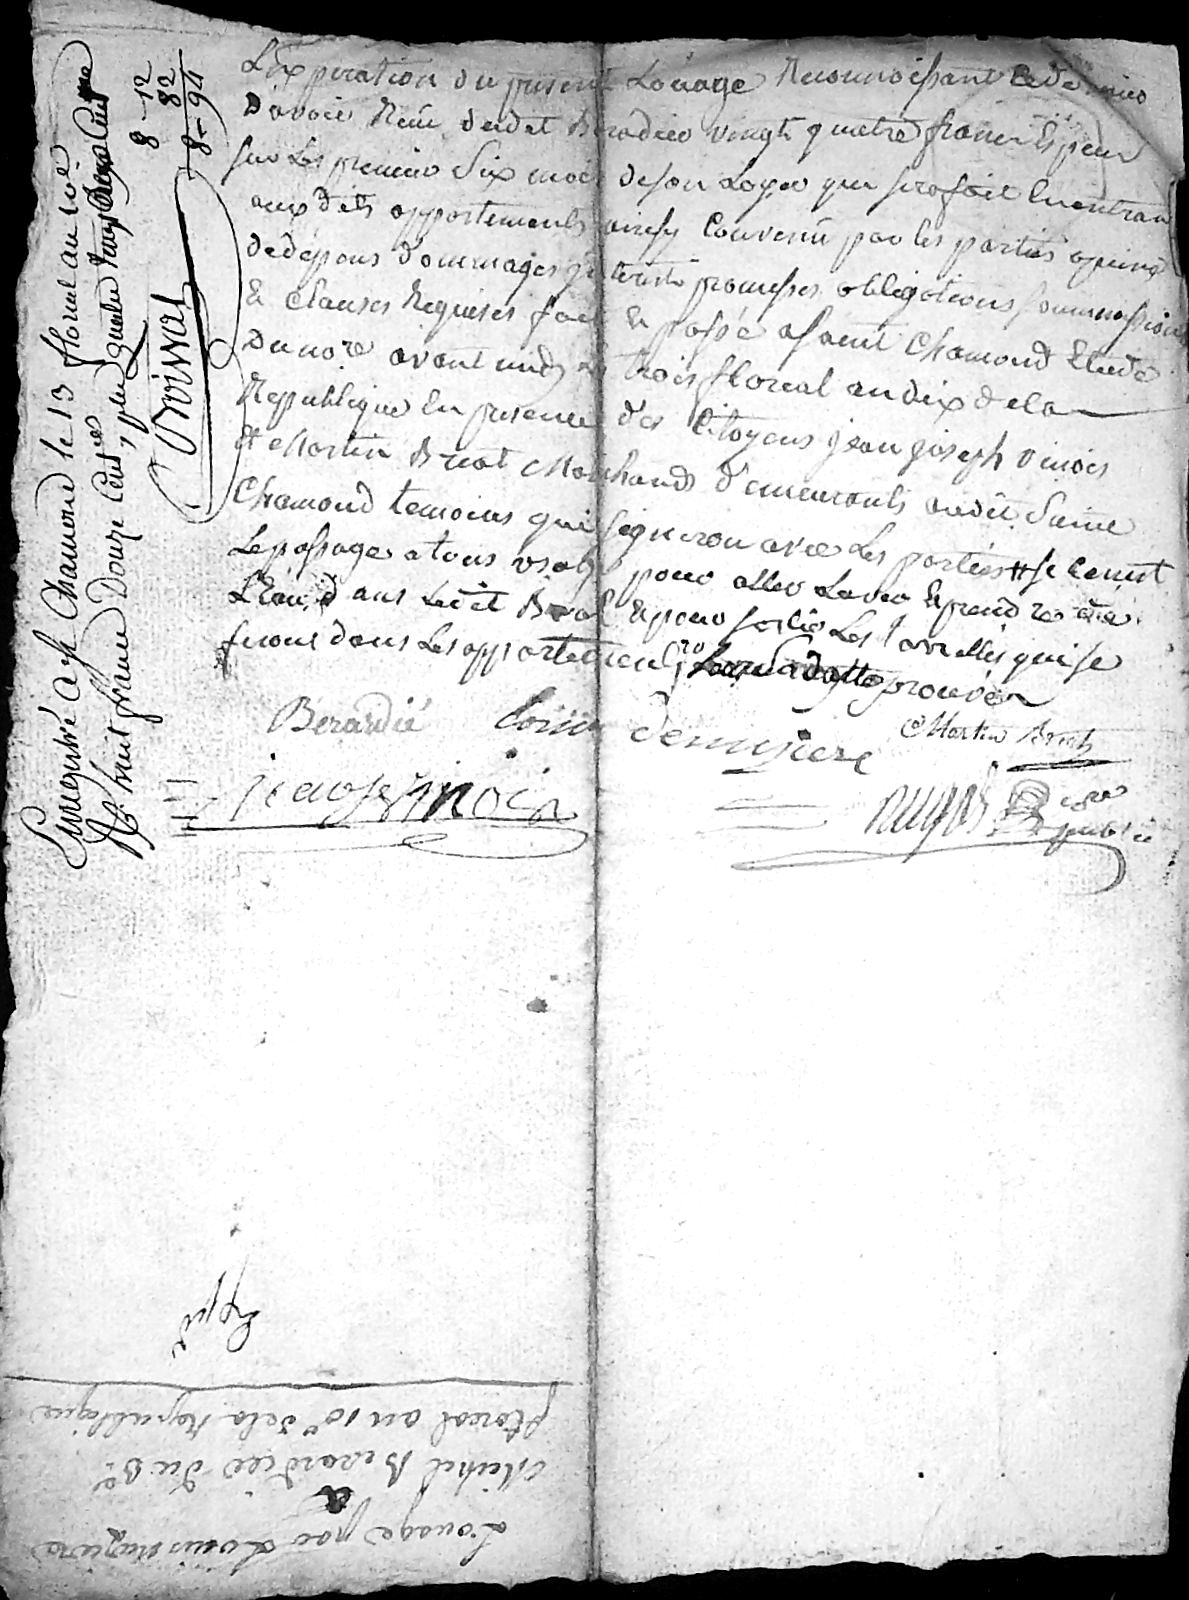 L'expiration du present Loüage Reconnoissant
D'avoir Reçu dudit Berardier vingt quatre francs Espeur
sur Les premier Six mois deson Loyer que sera fait En entran
aux dits appartements ainsy Convenu par les parties apeine
dedepens dommages interest promesses obligations soummissions
& Clauses Requises fait & passé a saint Chamond Etude
Du nore avant midy le trois floreal an dix dela
Republique En presence des Citoyens jean joseph vinois
et Martin Briat Marchands demeurants audit Saint
Chamond temoins qui signeron avec Les parties # se Reserve
Le passage a tous usages pour aller Laver & prendre de
L'Eau dans ledit & pour sortir Les qui se
feront dans Les appartements approuvé
Berardié Louis demiziere Martin Briat
jean jph vinois nore public
Enregistré a St Chamond le 13 floreal an 10
Rs huit francs Douze Centes plus quatre vingt deux Cent
8 - 12
82
8 - 94
Louage par Louis miziere
a
Michel Berardier du 3e
floreal an 10e dela Republique
Expd